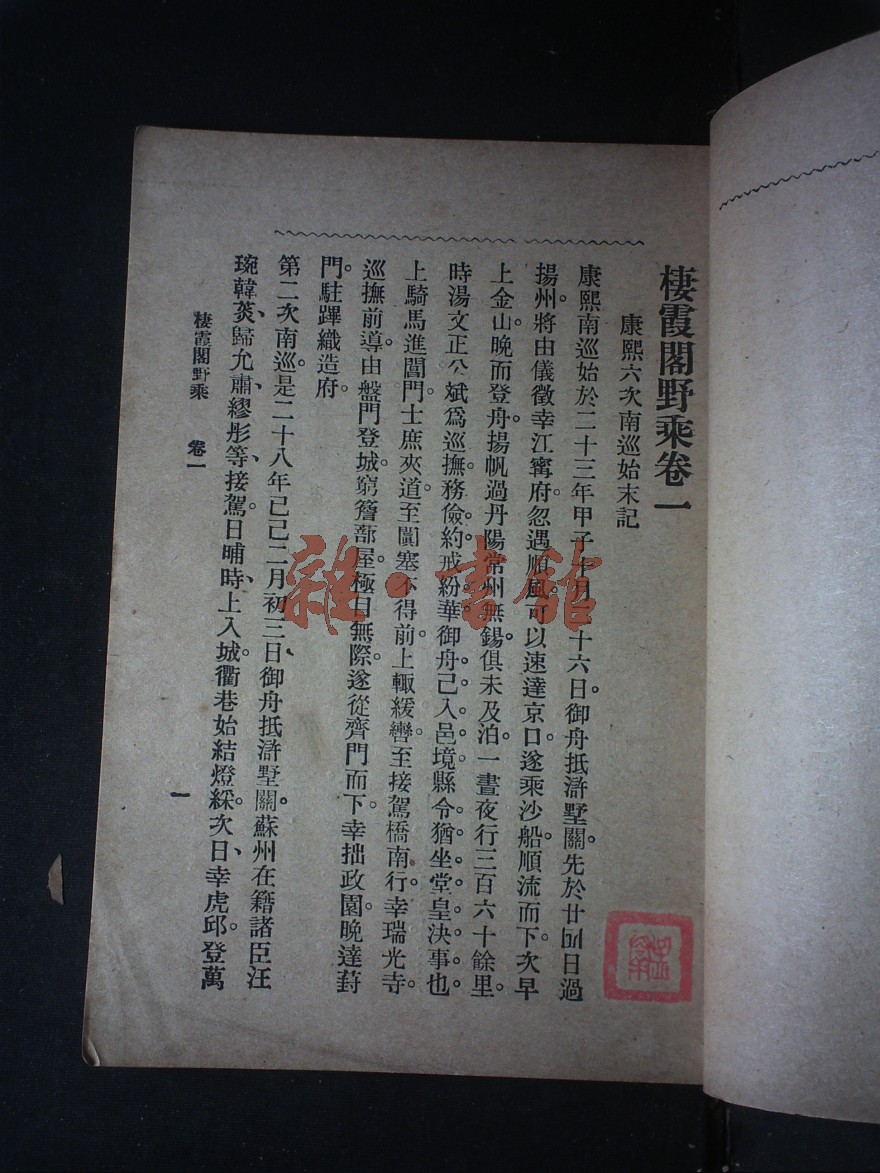 棲霞閣野乘卷一
康熙六次南巡始末記
康熙南巡始於二十三年甲子十月二十六日。御舟抵滸墅關。先於廿四日過
揚州。將由儀徵幸江寧府。忽遇順風。可以速達京口。遂乘沙船順流而下。次早
上金山。晚而登舟。揚帆過丹陽常州無錫。俱未及泊。一晝夜行三百六十餘里。
時湯文正公斌爲巡撫。務儉約。戒紛華。御舟已入邑境。縣令猶坐堂皇決事也。
上騎馬進閶門。士庶夾道。至闐塞不得前。上輒緩轡。至接駕橋南行。幸瑞光寺。
巡撫前導。由盤門登城。窮簷蔀屋。極目無際。遂從齊門而下。幸拙政園。晚達葑
門。駐蹕織造府。
第二次南巡。是二十八年己巳二月初三日。御舟抵滸墅關。蘇州在籍諸臣汪
琬、韓菼、歸允肅、繆彤等、接駕。日晡時、上入城。衢巷始結燈綵。次日、幸虎邱。登萬
棲霞閣野乘 卷一
一
雜·書館